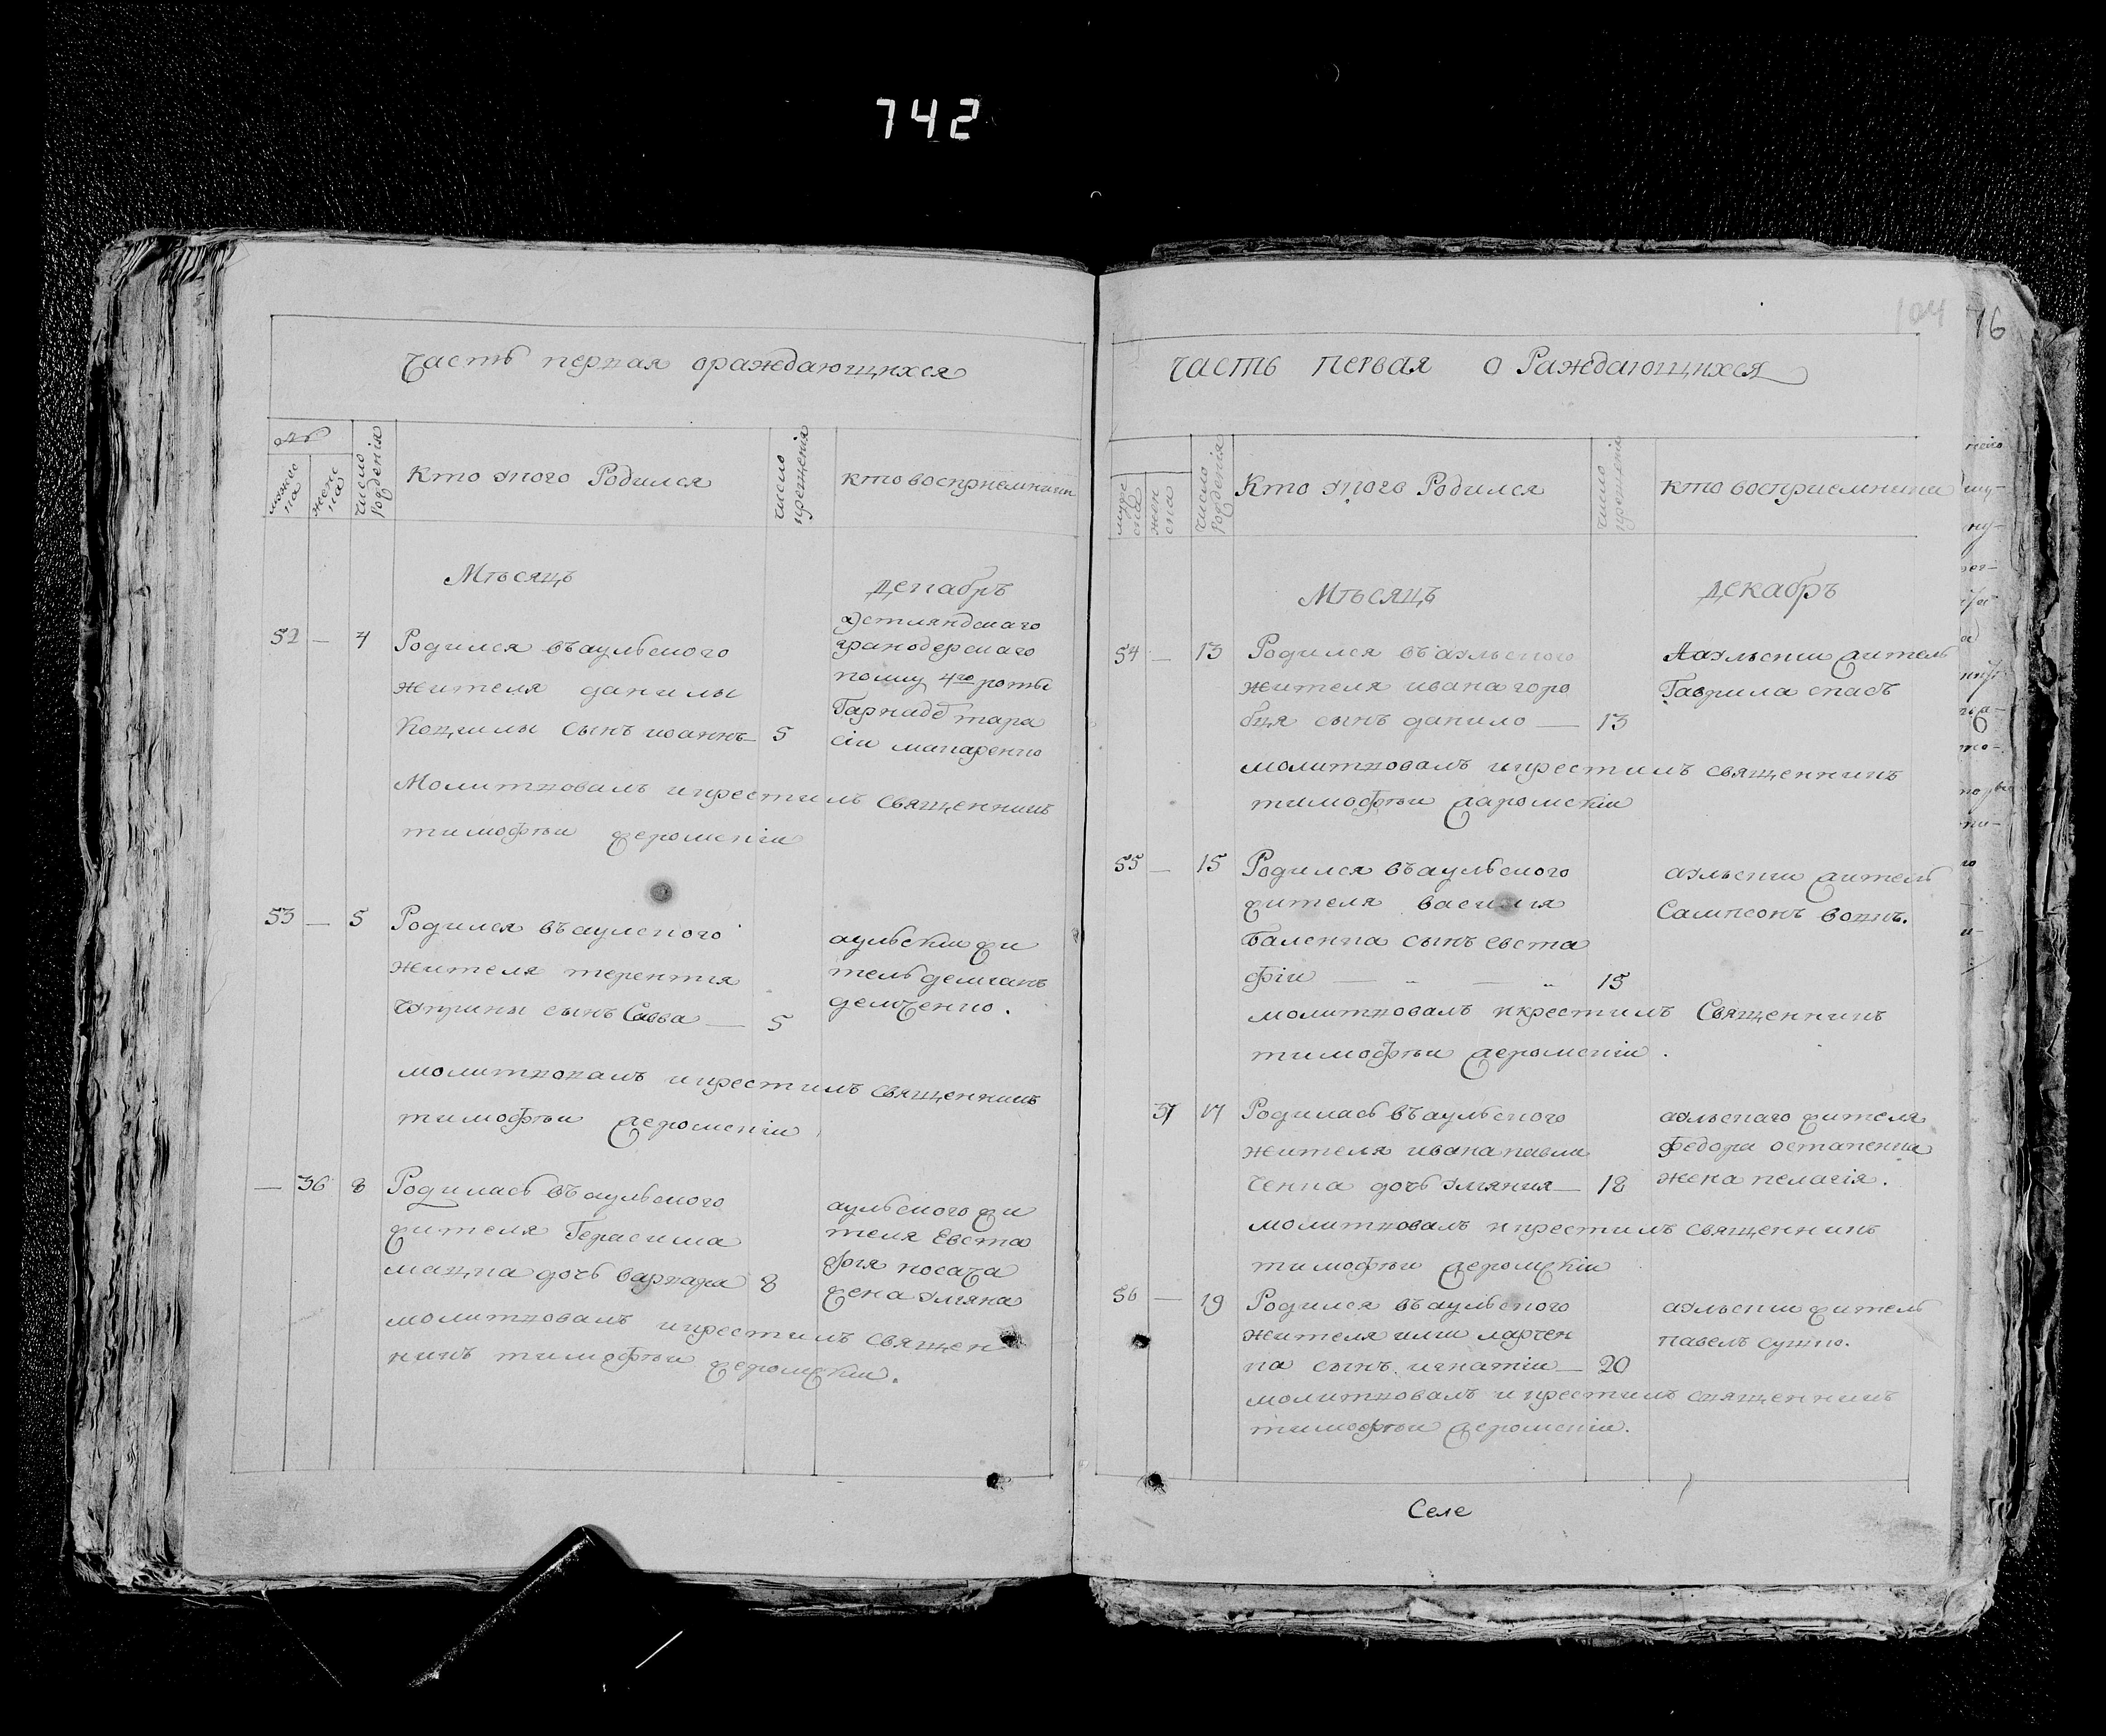 742
Часть первая о раждающихся
мужеска
женска
число рожденія
кто у кого Родился
число крещенія
кто восприемники
Мѣсяцъ
декабръ
52 — 4 Родился въ аульского
жителя данилы
Коцилы сынъ иоаннъ — 5
Эстляндскаго
гранодерскаго
полку 4го роты
тара
сіи макаренко
Молитвовалъ и крестилъ священникъ
тимофеи жеромскіи
53 — 5 Родился въ аулского
жителя терентия
сынъ Савва — 5
аульскии жи
тель демианъ
демченко.
молитвовалъ и крестилъ священникъ
тимофеи жеромскіи
— 36 8 Родилась въ аульского
жителя Герасима
мацка дочь варвара 8
аульского жи
теля Евста
фия носача
жена улияна
молитвовалъ и крестилъ священ
никъ тимофеи жеромскии.
104
76
Часть первая о Раждающихся
муже ска
жен ска
число рожденія
Кто у кого Родился
число крещенія
кто восприемники
Мѣсяцъ
декабръ
54 — 13 Родился въ аульского
жителя ивана горо
бця сынъ данило — 13
Ааульскии житель
Гаврила спасъ
молитвовалъ и крестилъ священникъ
тимофеи жаромскіи
55 — 15 Родился въ аульского
жителя василия
Баленка сынъ евста
фіи — „ — „ 15
аульскии житель
Сампсонъ вовкъ.
молитвовалъ и крестилъ Священникъ
тимофеи жеромскіи.
37 17 Родилась въ аульского
жителя ивана павли
ченка дочь улияния — 18
аульскаго жителя
федора остапенка
жена пелагія.
молитвовалъ и крестилъ священникъ
тимофеи жеромскіи
56 — 19 Родился въ аульского
жителя илии ларчен
ка сынъ игнатіи — 20
аульскии житель
павелъ сушко.
молитвовалъ и крестилъ священникъ
тимофеи жеромскіи.
Селе